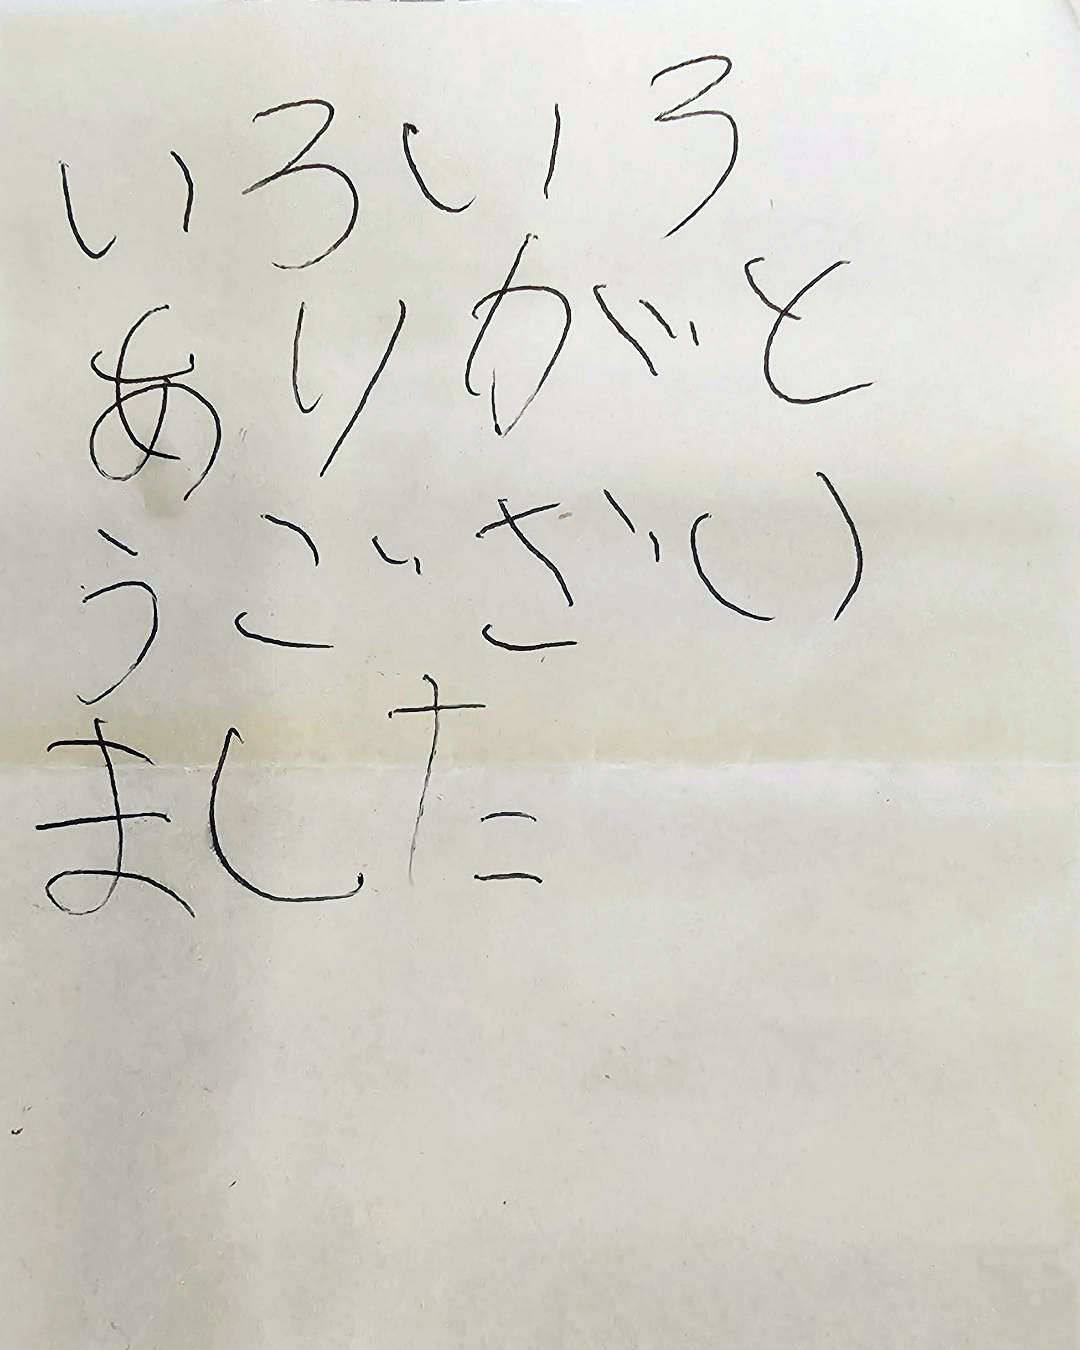 いろいろ
ありがと
うござい
ました